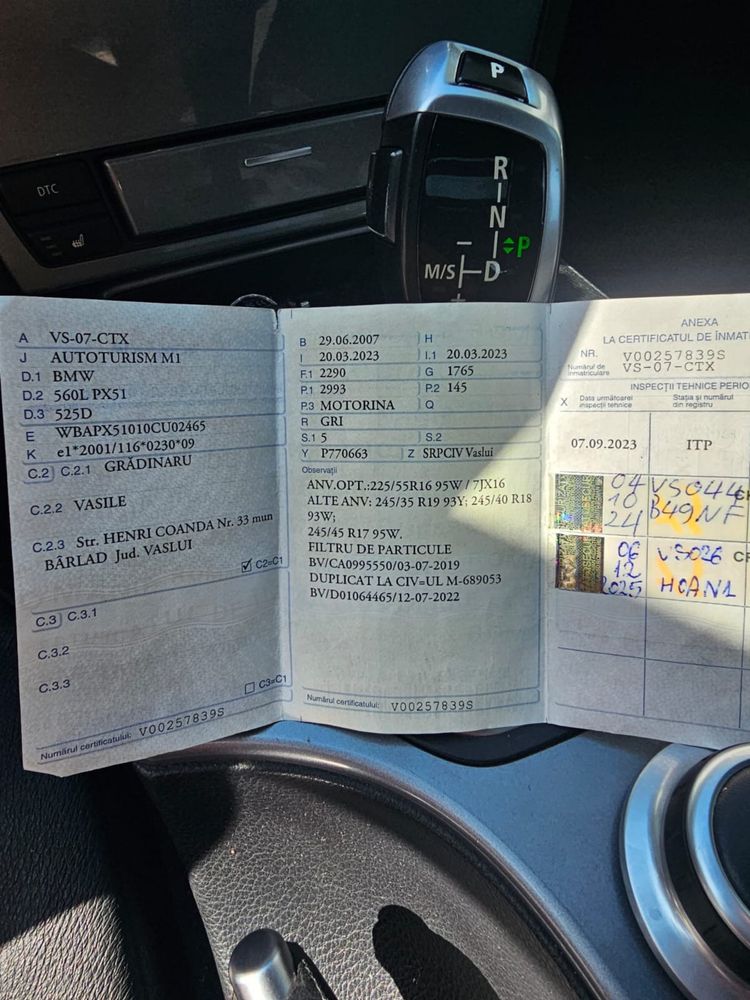 P
R
N
P
M/S
D
+
DTC
A VS-07-CTX
J AUTOTURISM M1
D.1 BMW
D.2 560L PX51
D.3 525D
E WBAPX51010CU02465
K e1*2001/116*0230*09
C.2 C.2.1 GRĂDINARU
C.2.2 VASILE
C.2.3 Str. HENRI COANDA Nr. 33 mun
BÂRLAD Jud. VASLUI
C2=C1
C.3 C.3.1
C.3.2
C.3.3
C3=C1
Numărul certificatului: V00257839S
B 29.06.2007 H
I 20.03.2023 I.1 20.03.2023
F.1 2290 G 1765
P.1 2993 P.2 145
P.3 MOTORINA Q
R GRI
S.1 5 S.2
Y P770663 Z SRPCIV Vaslui
Observații
ANV.OPT.:225/55R16 95W / 7JX16
ALTE ANV: 245/35 R19 93Y; 245/40 R18
93W;
245/45 R17 95W.
FILTRU DE PARTICULE
BV/CA0995550/03-07-2019
DUPLICAT LA CIV=UL M-689053
BV/D01064465/12-07-2022
Numărul certificatului: V00257839S
ANEXA
LA CERTIFICATUL DE ÎNMAT
NR. V00257839S
Numărul de
înmatriculare VS-07-CTX
INSPECȚII TEHNICE PERIO
X Data următoarei
inspecții tehnice
Stația și numărul
din registru
07.09.2023 ITP
04
10
24
VS044
B49NF
06
12
2025
VS026
HCAN1